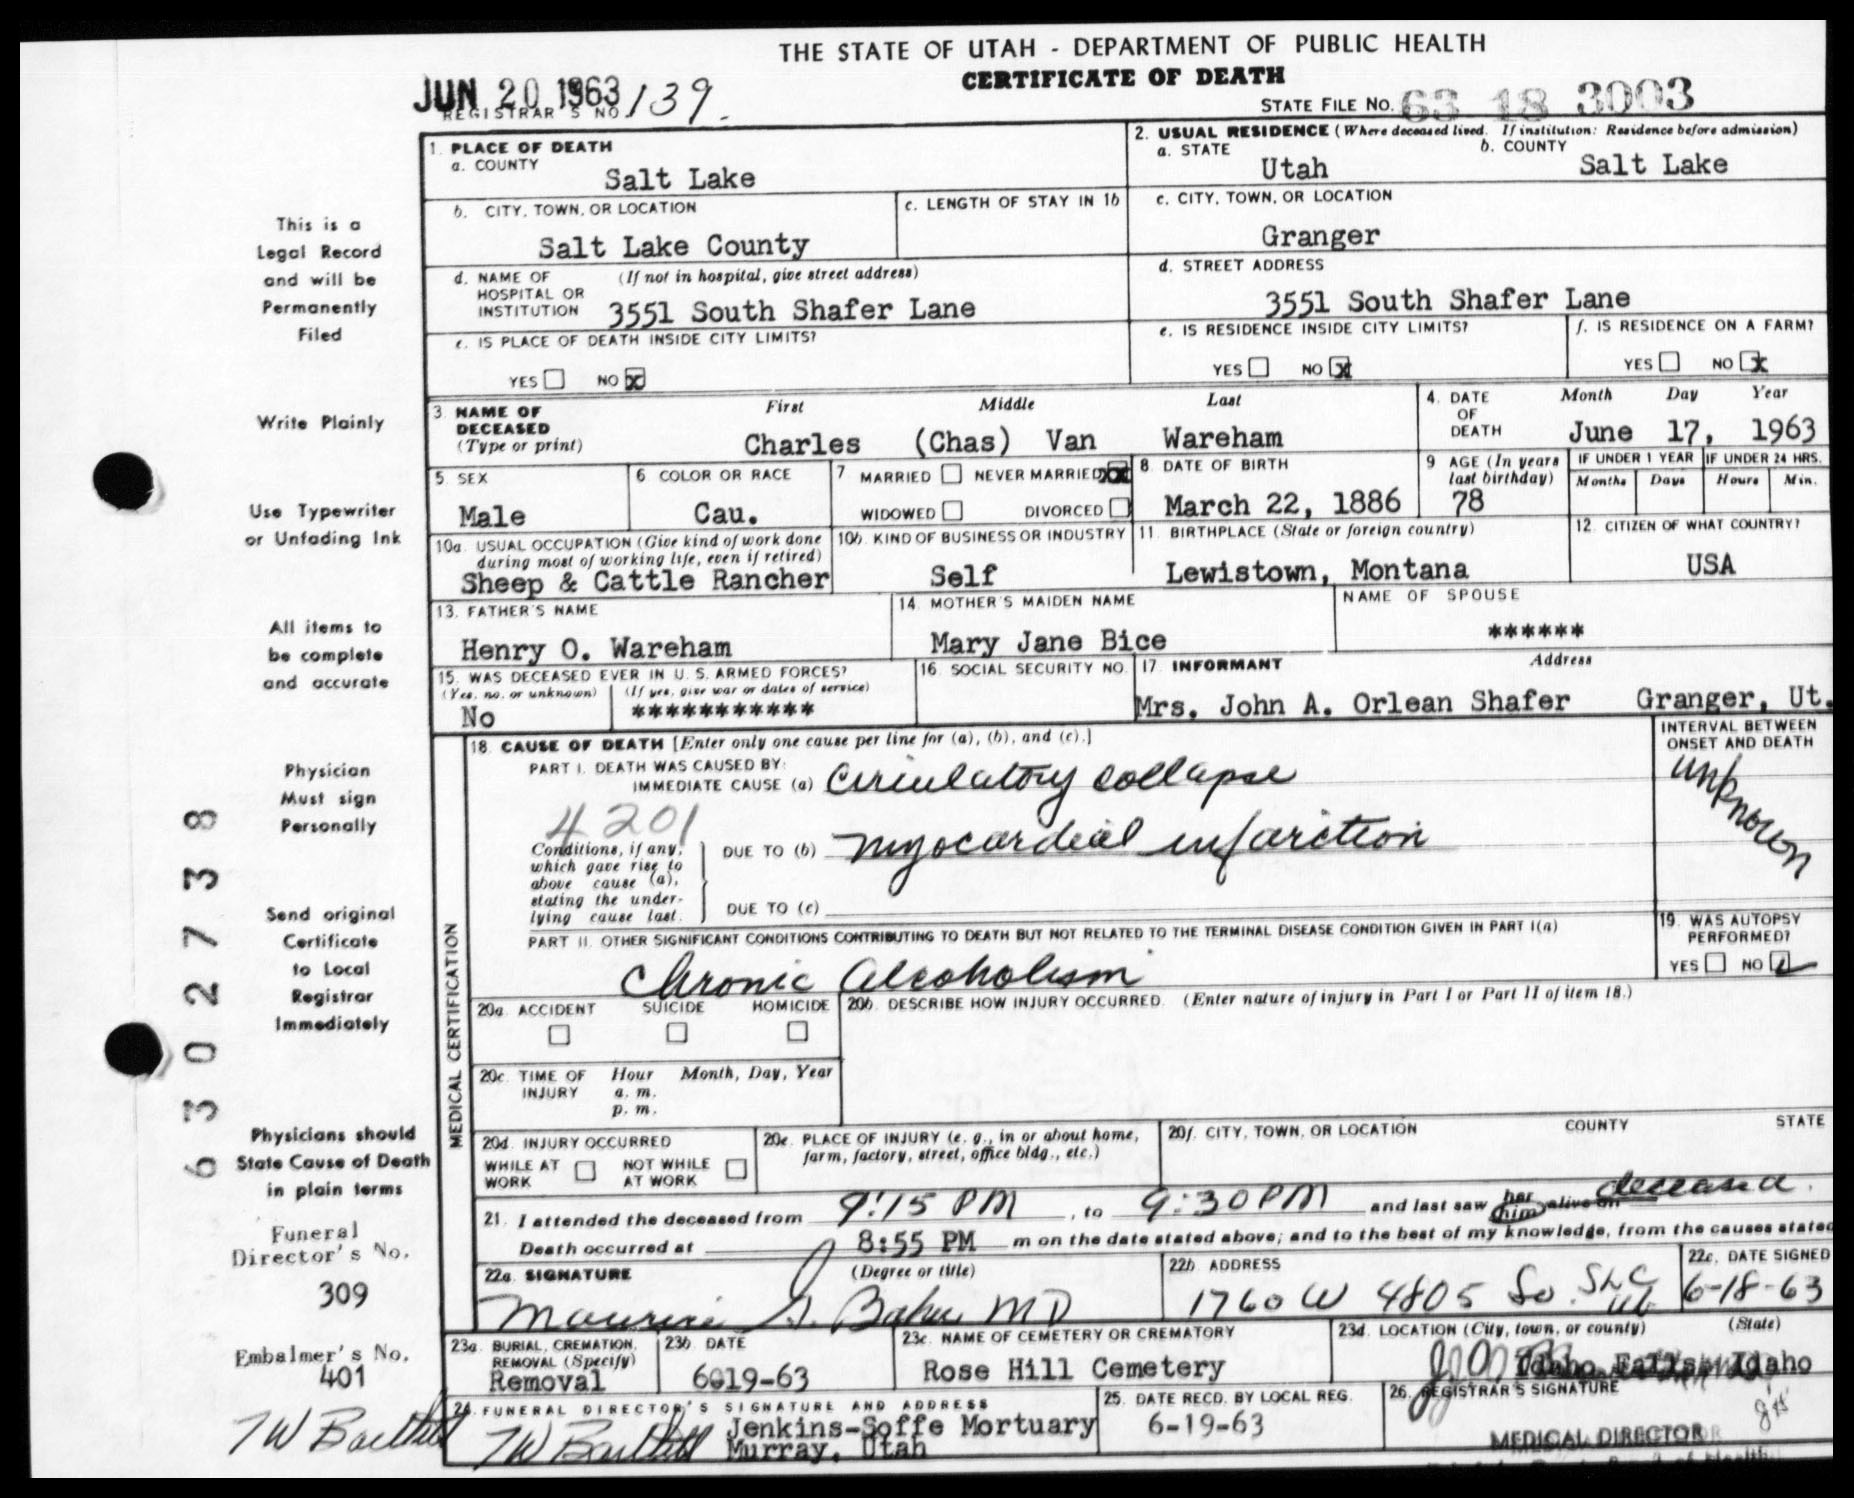 THE STATE OF UTAH - DEPARTMENT OF PUBLIC HEALTH
CERTIFICATE OF DEATH
JUN 20 1963
REGISTRAR'S NO. 139.
STATE FILE NO. 63 18 3003
1. PLACE OF DEATH
a. COUNTY
Salt Lake
2. USUAL RESIDENCE (Where deceased lived. If institution: Residence before admission)
a. STATE b. COUNTY
Utah Salt Lake
b. CITY, TOWN, OR LOCATION
Salt Lake County
c. LENGTH OF STAY IN 1b
c. CITY, TOWN, OR LOCATION
Granger
d. NAME OF HOSPITAL OR INSTITUTION (If not in hospital, give street address)
3551 South Shafer Lane
d. STREET ADDRESS
3551 South Shafer Lane
e. IS PLACE OF DEATH INSIDE CITY LIMITS?
YES NO X
e. IS RESIDENCE INSIDE CITY LIMITS?
YES NO X
f. IS RESIDENCE ON A FARM?
YES NO X
3. NAME OF DECEASED (Type or print)
First Middle Last
Charles (Chas) Van Wareham
4. DATE OF DEATH Month Day Year
June 17, 1963
5. SEX
Male
6 COLOR OR RACE
Cau.
7 MARRIED NEVER MARRIED XX
WIDOWED DIVORCED
8. DATE OF BIRTH
March 22, 1886
9 AGE (In years last birthday)
78
IF UNDER 1 YEAR IF UNDER 24 HRS.
Months Days Hours Min.
10a. USUAL OCCUPATION (Give kind of work done during most of working life, even if retired)
Sheep & Cattle Rancher
10b. KIND OF BUSINESS OR INDUSTRY
Self
11. BIRTHPLACE (State or foreign country)
Lewistown, Montana
12. CITIZEN OF WHAT COUNTRY?
USA
13. FATHER'S NAME
Henry O. Wareham
14. MOTHER'S MAIDEN NAME
Mary Jane Bice
NAME OF SPOUSE
******
15. WAS DECEASED EVER IN U. S. ARMED FORCES?
(Yes, no, or unknown) (If yes, give war or dates of service)
No ***********
16. SOCIAL SECURITY NO.
17. INFORMANT Address
Mrs. John A. Orlean Shafer Granger, Ut.
MEDICAL CERTIFICATION
18. CAUSE OF DEATH [Enter only one cause per line for (a), (b), and (c).]
INTERVAL BETWEEN ONSET AND DEATH
PART I. DEATH WAS CAUSED BY:
IMMEDIATE CAUSE (a) Circulatory collapse
unknown
4201
Conditions, if any, which gave rise to above cause (a), stating the underlying cause last.
DUE TO (b) myocardial infarction
DUE TO (c)
PART II. OTHER SIGNIFICANT CONDITIONS CONTRIBUTING TO DEATH BUT NOT RELATED TO THE TERMINAL DISEASE CONDITION GIVEN IN PART I(a)
Chronic Alcoholism
19. WAS AUTOPSY PERFORMED?
YES NO
20a. ACCIDENT SUICIDE HOMICIDE
20b. DESCRIBE HOW INJURY OCCURRED. (Enter nature of injury in Part I or Part II of item 18.)
20c. TIME OF INJURY Hour Month, Day, Year
a. m.
p. m.
20d. INJURY OCCURRED
WHILE AT WORK NOT WHILE AT WORK
20e. PLACE OF INJURY (e. g., in or about home, farm, factory, street, office bldg., etc.)
20f. CITY, TOWN, OR LOCATION COUNTY STATE
21. I attended the deceased from 9:15 PM, to 9:30 PM and last saw her him alive on deceased.
Death occurred at 8:55 PM m on the date stated above; and to the best of my knowledge, from the causes stated
22a. SIGNATURE (Degree or title)
MD
22b. ADDRESS
1760 W 4805 So. SLC Ut
22c. DATE SIGNED
6-18-63
23a. BURIAL, CREMATION, REMOVAL (Specify)
Removal
23b. DATE
6-19-63
23c. NAME OF CEMETERY OR CREMATORY
Rose Hill Cemetery
23d. LOCATION (City, town, or county) (State)
Idaho Falls, Idaho
24. FUNERAL DIRECTOR'S SIGNATURE AND ADDRESS
TW Bartlett
Jenkins-Soffe Mortuary
Murray, Utah
25. DATE RECD. BY LOCAL REG.
6-19-63
26. REGISTRAR'S SIGNATURE
MEDICAL DIRECTOR
This is a
Legal Record
and will be
Permanently
Filed
Write Plainly
Use Typewriter
or Unfading Ink
All items to
be complete
and accurate
Physician
Must sign
Personally
Send original
Certificate
to Local
Registrar
Immediately
Physicians should
State Cause of Death
in plain terms
Funeral
Director's No.
309
Embalmer's No.
401
TW Bartlett
63027338